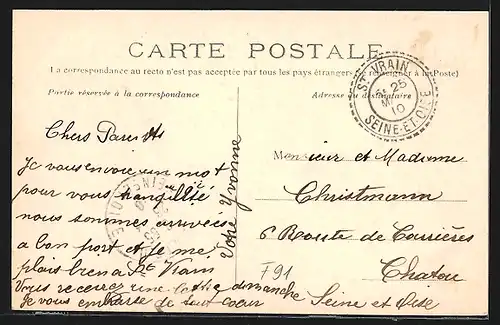 CARTE POSTALE
La correspondance au recto n'est pas acceptée par tous les pays étrangers (Se renseigner à la Poste)
Partie réservée à la correspondance
Adresse du destinataire
ST VRAIN
25
10
SEINE-ET-OISE
Chers Parents
Je vous envoie un mot
pour vous tranquillité
nous sommes arrivées
a bon port et je me
plais bien a St Vrain
Vous recevrez une lettre dimanche
Je vous embrasse de tout coeur
Votre Yvonne
Monsieur et Madame
Christmann
6 Route de Carrières
Chatou
Seine et Oise
F91